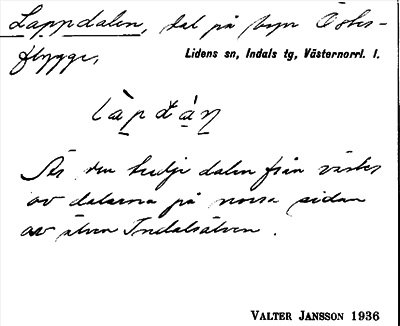 Lappdalen, dal på byn Öster-
flygge,
Lidens sn, Indals tg, Västernorrl. l.
làpdàn
Är den tredje dalen från väster
av dalarna på norra sidan
av älven Indalsälven.
VALTER JANSSON 1936